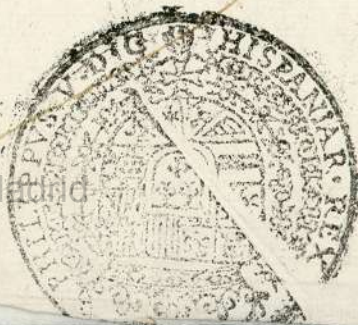 PHILIPPVS·V·D·G· HISPANIAR·REX
Madrid